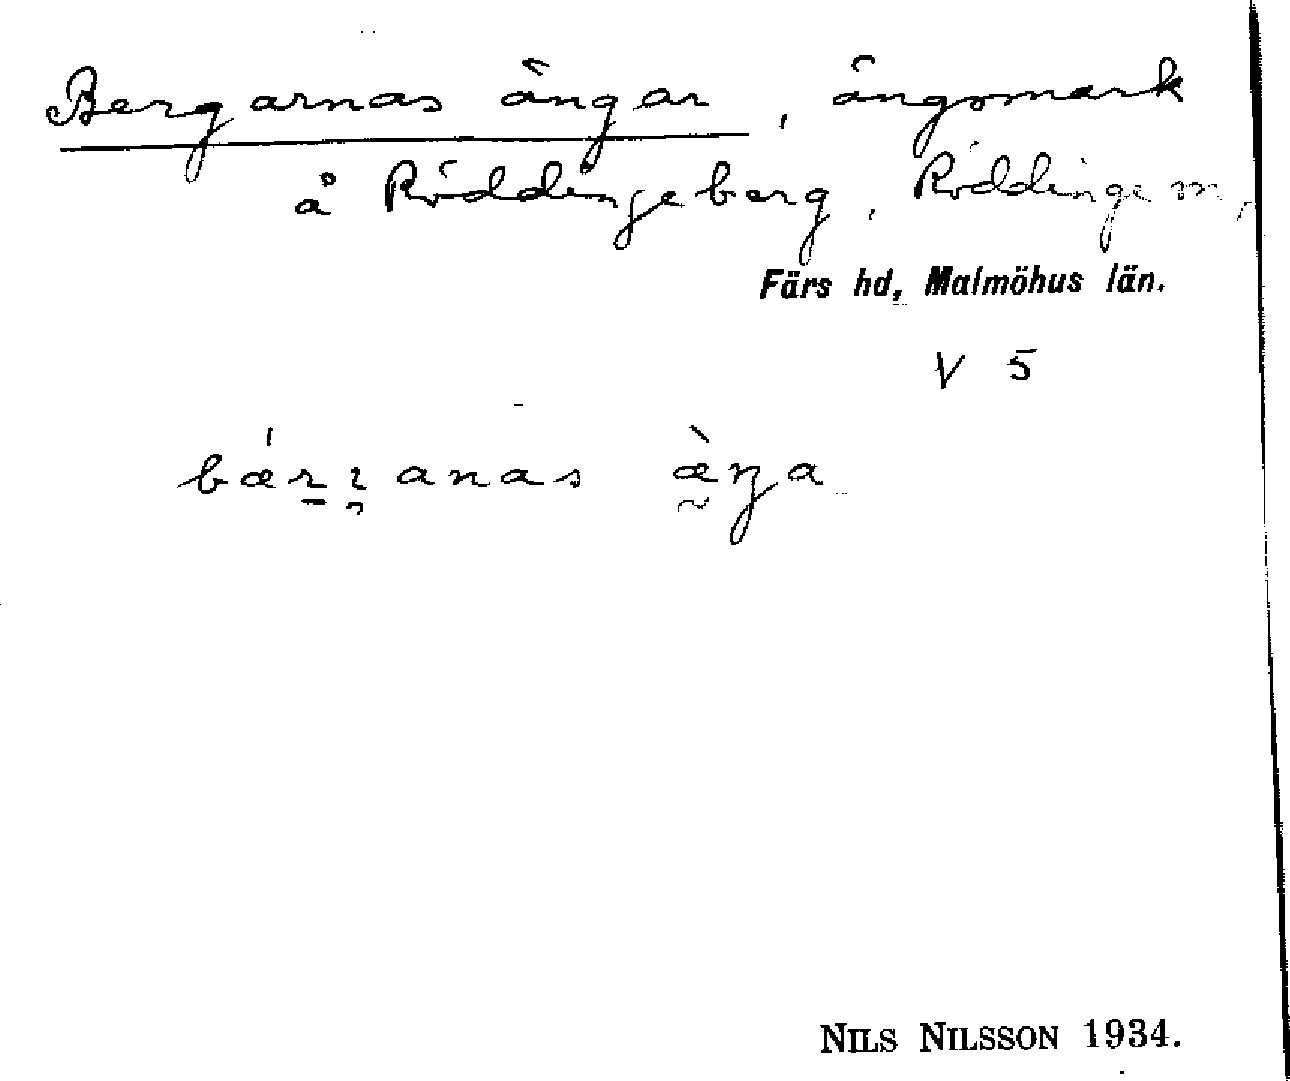 Bergarnas ängar, ängsmark
å Röddingeberg, Röddinge sn,
Färs hd, Malmöhus län.
V 5
NILS NILSSON 1934.